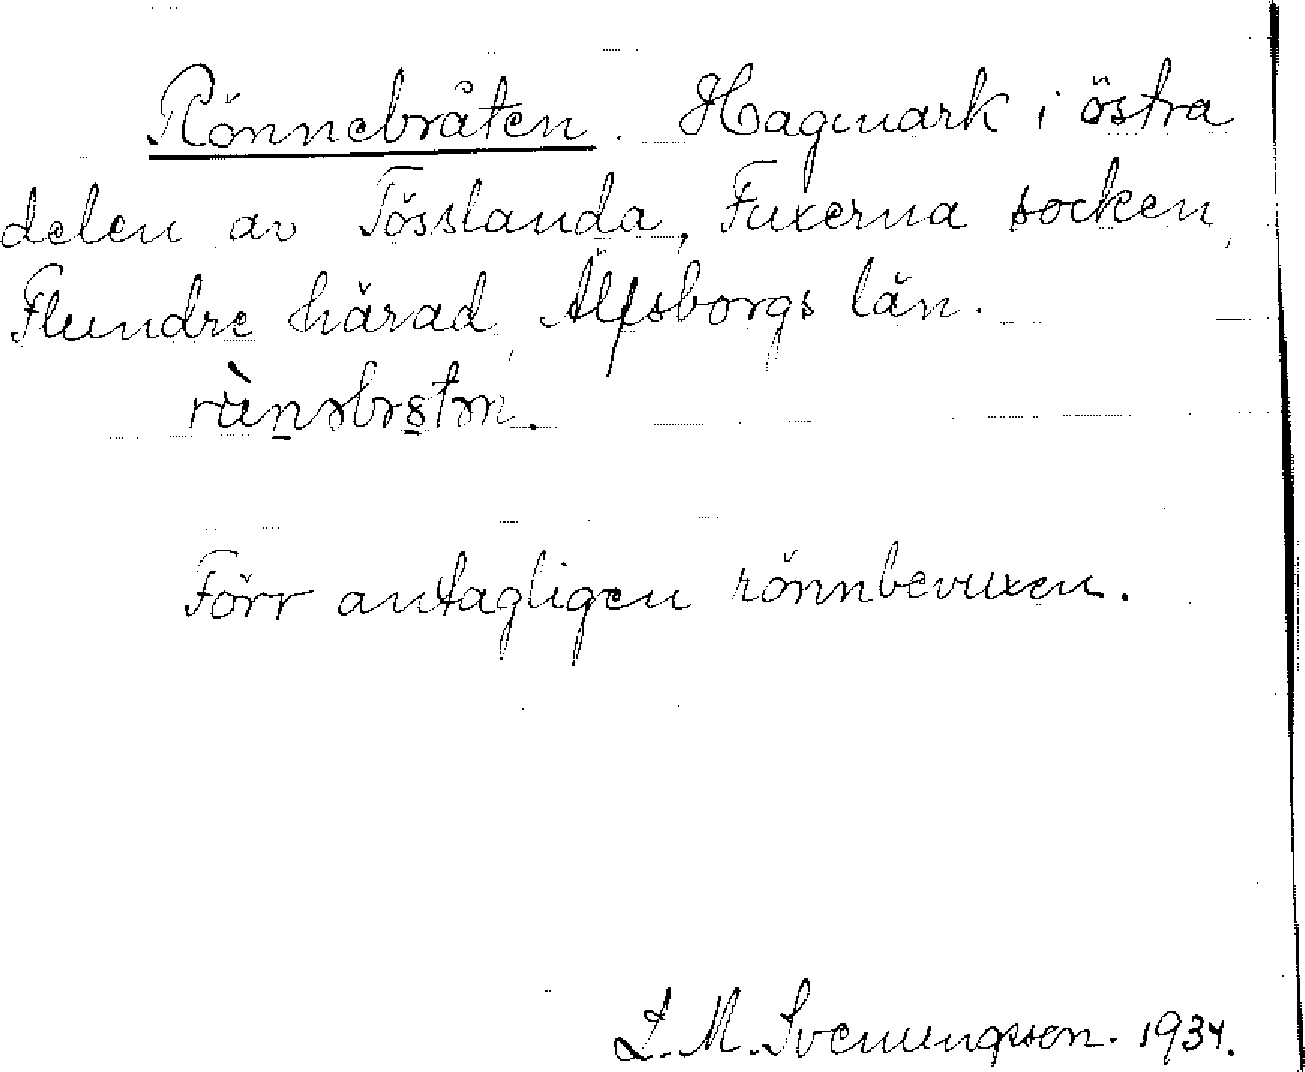 Rönnebråten. Hagmark i östra
delen av Tösslanda, Fuxerna socken,
Flundre härad, Älfsborgs län.
Förr antagligen rönnbevuxen.
L. M. Svenungsson. 1934.